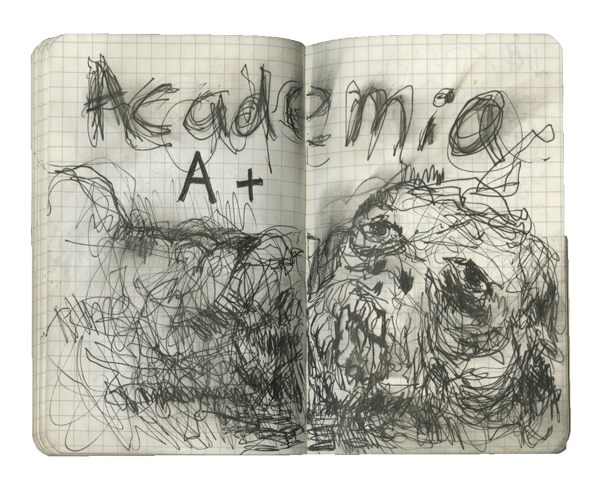 Academia
A+